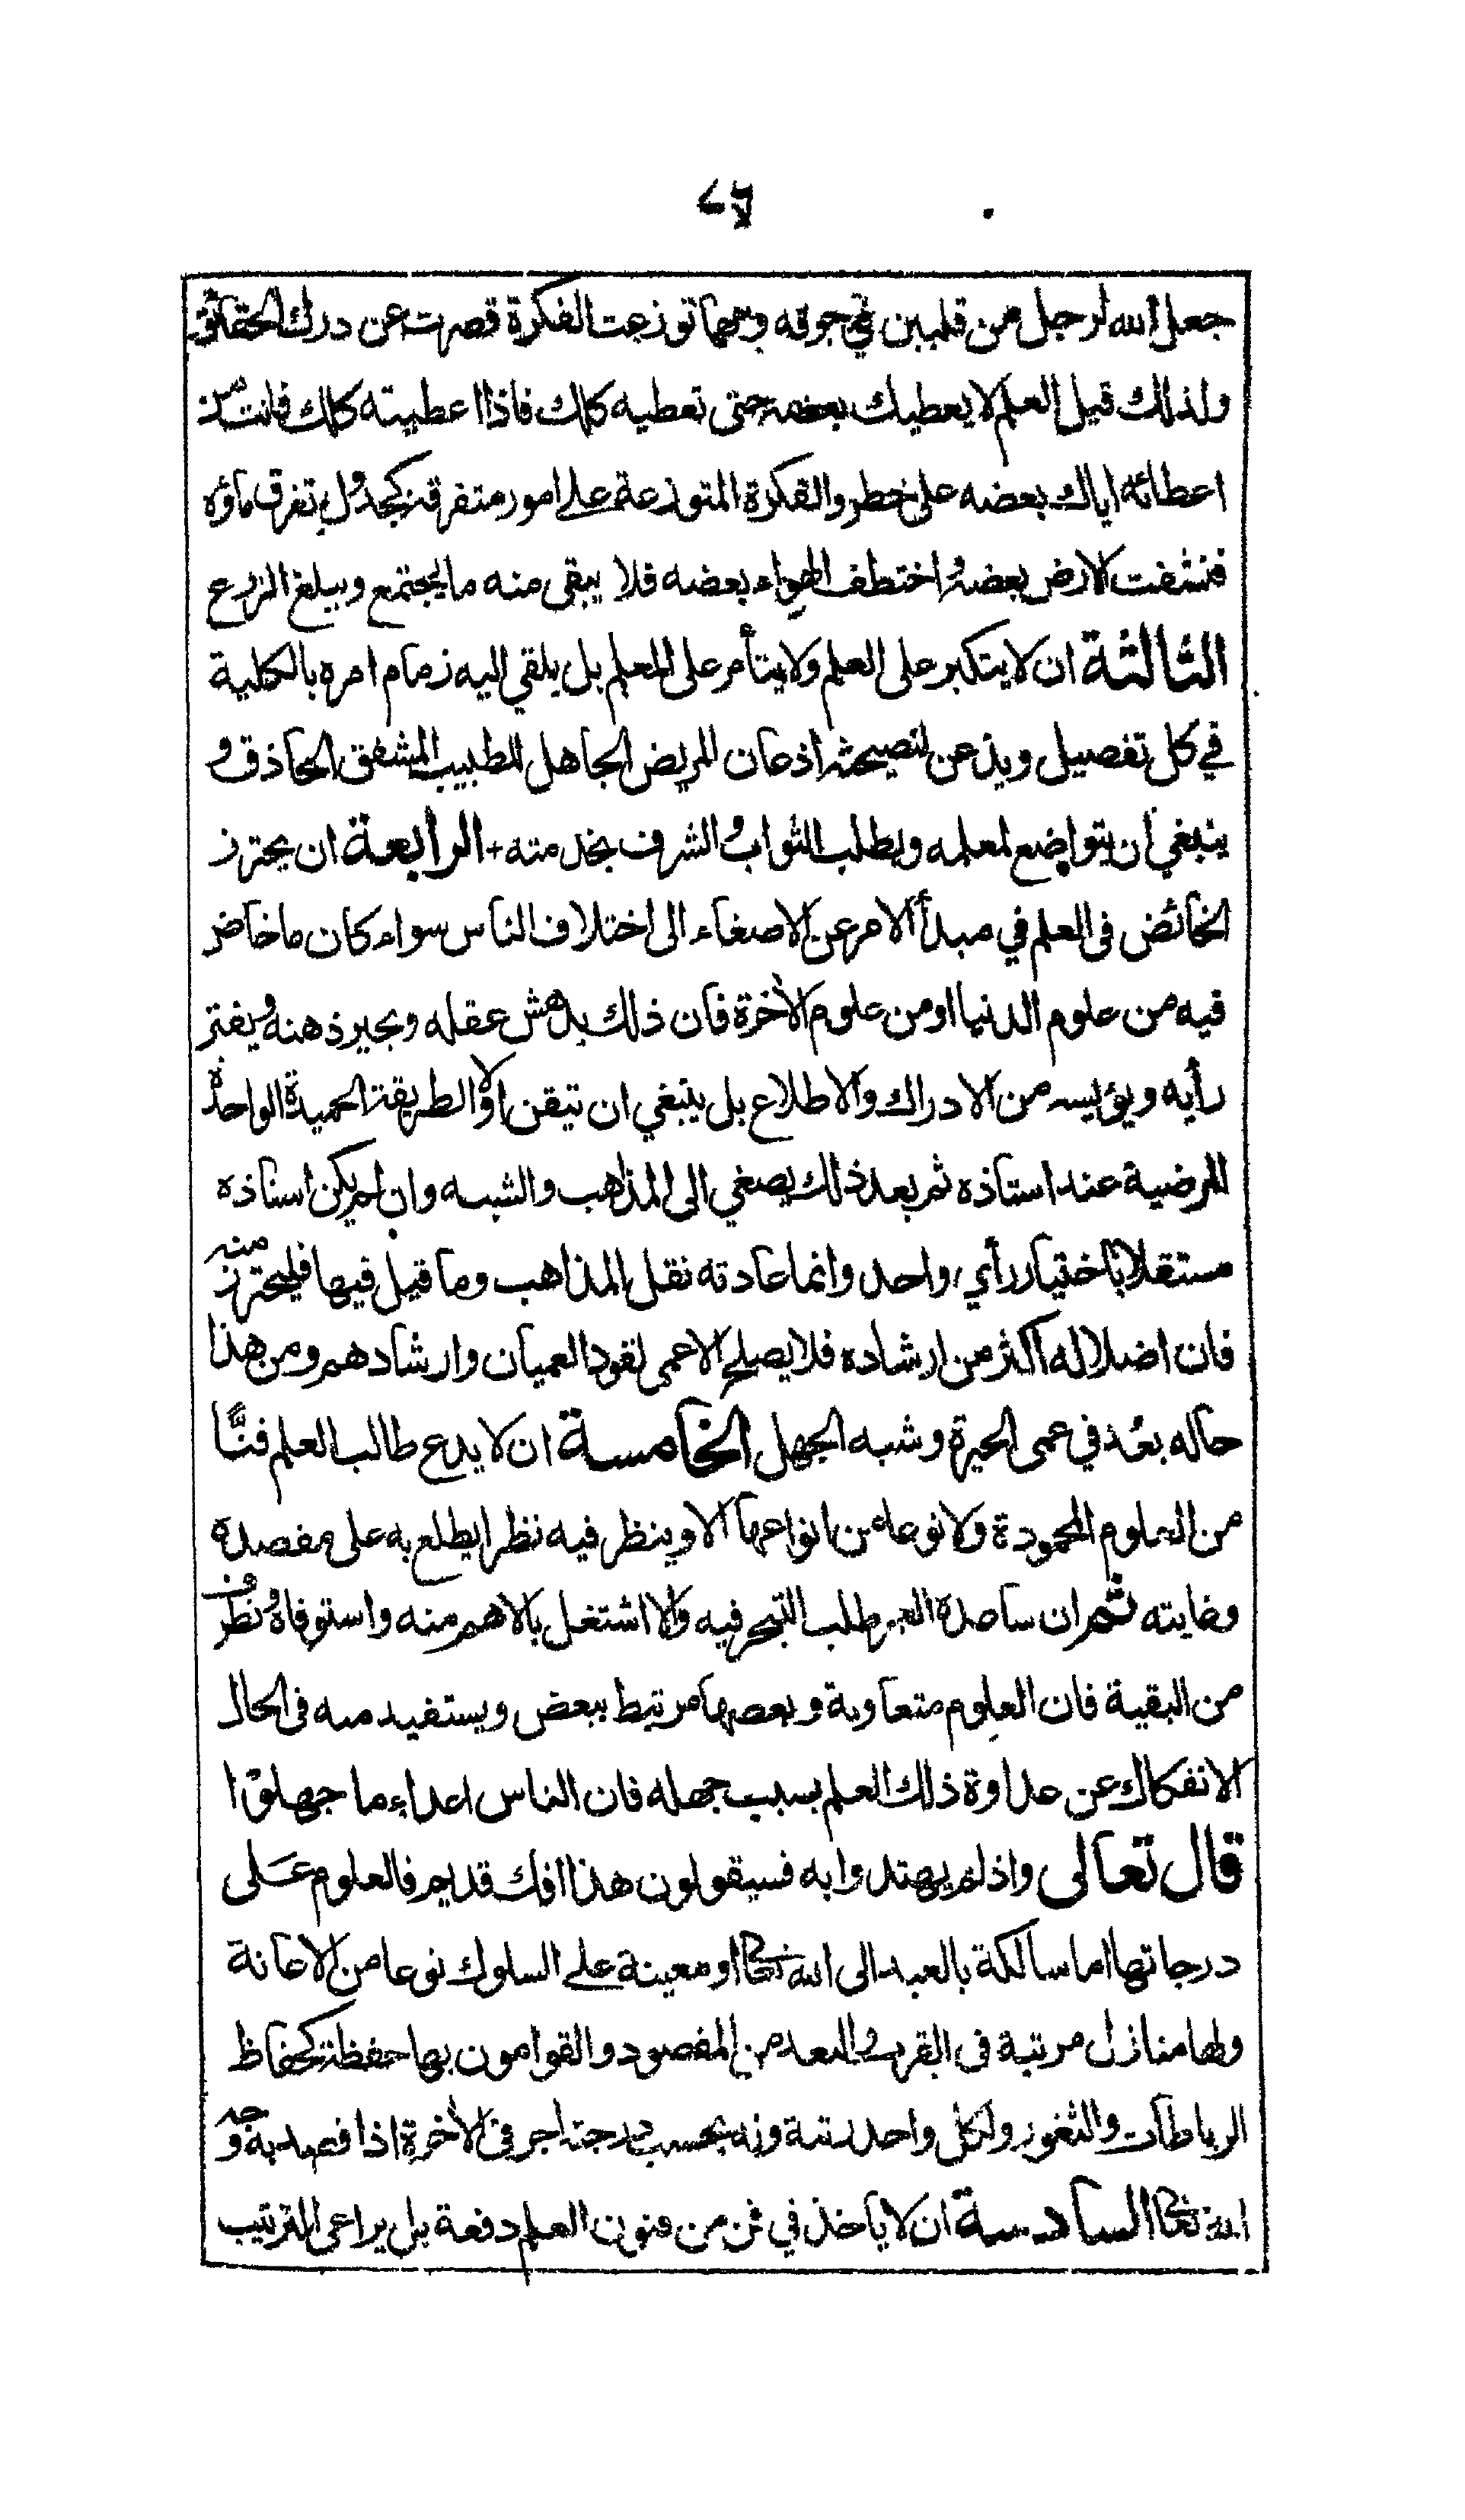 جعل الله لرجل من قلبين في جوفه ومهما توزعت الفكرة قصرت عن درك الحقائق
ولذلك قيل العلم لا يعطيك بعضه حتى تعطيه كلك فاذا اعطيته كلك فانت من
اعطائه اياك بعضه على خطر والفكرة المتوزعة على امور متفرقة كجدول تفرق ماؤه
فنشفت الارض بعضه واختطف الهواء بعضه فلا يبقى منه ما يجتمع ويبلغ المزرع
الثالثة ان لا يتكبر على العلم ولا يتأمر على المعلم بل يلقي اليه زمام امره بالكلية
في كل تفصيل ويذعن لنصيحته اذعان المريض الجاهل للطبيب المشفق الحاذق و
ينبغي ان يتواضع لمعلمه ويطلب الثواب والشرف بخدمته + الرابعة ان يحترز
الخائض فى العلم في مبدأ الامر عن الاصغاء الى اختلاف الناس سواء كان ما خاض
فيه من علوم الدنيا او من علوم الأخرة فان ذلك يدهش عقله ويحير ذهنه ويفتر
رأيه ويؤيسه من الادراك والاطلاع بل ينبغي ان يتقن اولا الطريقة الحميدة الواحدة
المرضية عند استاذه ثم بعد ذلك يصغي الى المذاهب والشبه وان لم يكن استاذه
مستقلا باختيار رأي واحد وانما عادته نقل المذاهب وما قيل فيها فليحترز منه
فان اضلاله اكثر من ارشاده فلا يصلح الاعمى لقود العميان وارشادهم ومن هذا
حاله بعُد في عمى الحيرة وشبه الجهل الخامسة ان لا يدع طالب العلم فنًّا
من العلوم المحمودة ولا نوعا من انواعها الا وينظر فيه نظرا يطلع به على مقصده
وغايته ثم ان ساعده العمر طلب التبحر فيه والا اشتغل بالاهم منه واستوفاه وتطرف
من البقية فان العلوم متعاونة وبعضها مرتبط ببعض ويستفيد منه فى الحال
الانفكاك عن عداوة ذلك العلم بسبب جهله فان الناس اعداء ما جهلوا
قال تعالى واذ لم يهتدوا به فسيقولون هذا افك قديم فالعلوم عَلى
درجاتها اما سالكة بالعبد الى الله تعالى او معينة على السلوك نوعا من الاعانة
ولها منازل مرتبة فى القرب والبعد من المقصود والقوامون بها حفظة كحفاظ
الرباطات والثغور ولكل واحد رتبة وله بحسب درجته اجر فى الأخرة اذا قصد به وجه
الله تعالى السادسة ان لا ياخذ في فن من فنون العلم دفعة بل يراعى الترتيب